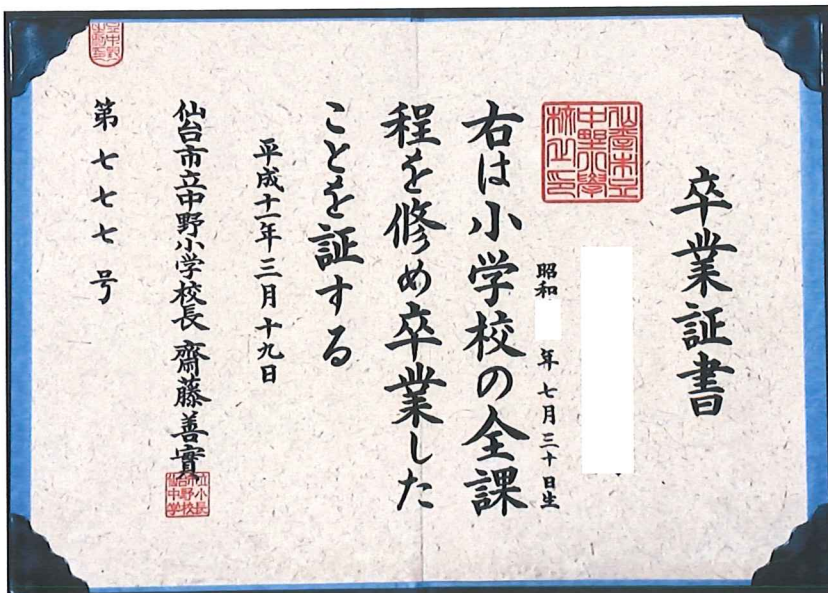 卒業証書
昭和 年七月三十日生
右は小学校の全課
程を修め卒業した
ことを証する
平成十一年三月十九日
仙台市立中野小学校長 齋藤善實
第七七七号